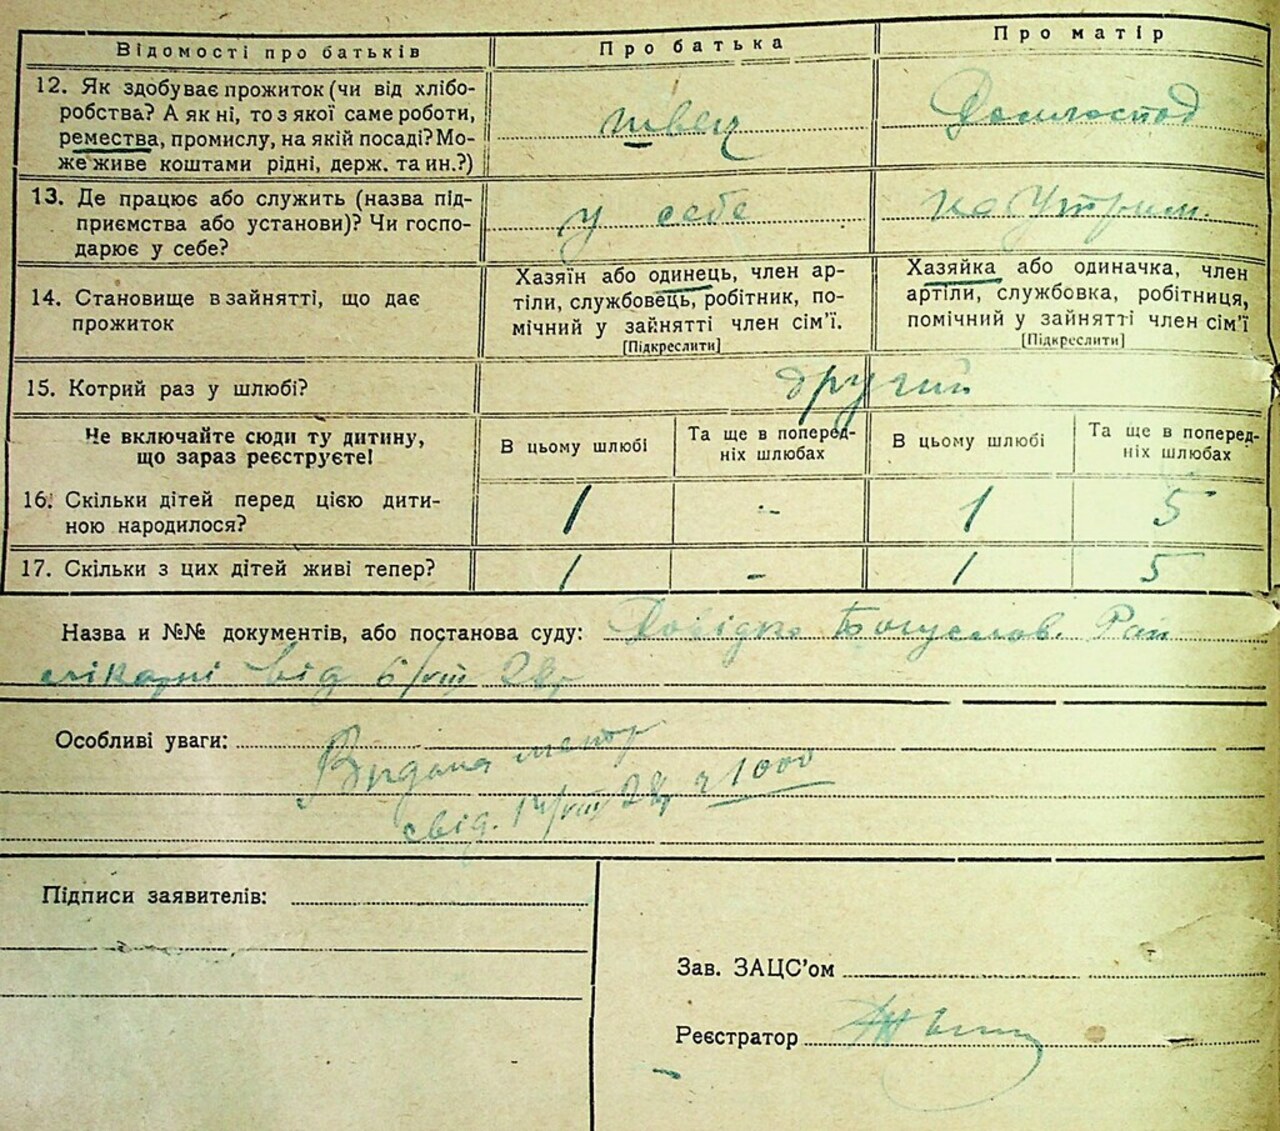 Відомості про батьків
Про батька
Про матір
12. Як здобуває прожиток (чи від хлібо-
робства? А як ні, то з якої саме роботи,
ремества, промислу, на якій посаді? Мо-
же живе коштами рідні, держ. та ин.?)
швець
Домгоспод
13. Де працює або служить (назва під-
приємства або установи)? Чи госпо-
дарює у себе?
у себе
на Утрим.
14. Становище в зайнятті, що дає
прожиток
Хазяїн або одинець, член ар-
тіли, службовець, робітник, по-
мічний у зайнятті член сім'ї.
[Підкреслити]
Хазяйка або одиначка, член
артіли, службовка, робітниця,
помічний у зайнятті член сім'ї
[Підкреслити]
15. Котрий раз у шлюбі?
другий
Не включайте сюди ту дитину,
що зараз реєструєте!
В цьому шлюбі
Та ще в поперед-
ніх шлюбах
В цьому шлюбі
Та ще в поперед-
ніх шлюбах
16. Скільки дітей перед цією дити-
ною народилося?
1 - 1 5
17. Скільки з цих дітей живі тепер?
1 - 1 5
Назва и №№ документів, або постанова суду: Довідка Богуслов. Рай
лікарні від 6/VIII 28р
Особливі уваги:
Видана метр
свід. 14/VIII 28р 1000
Підписи заявителів:
Зав. ЗАЦС'ом
Реєстратор